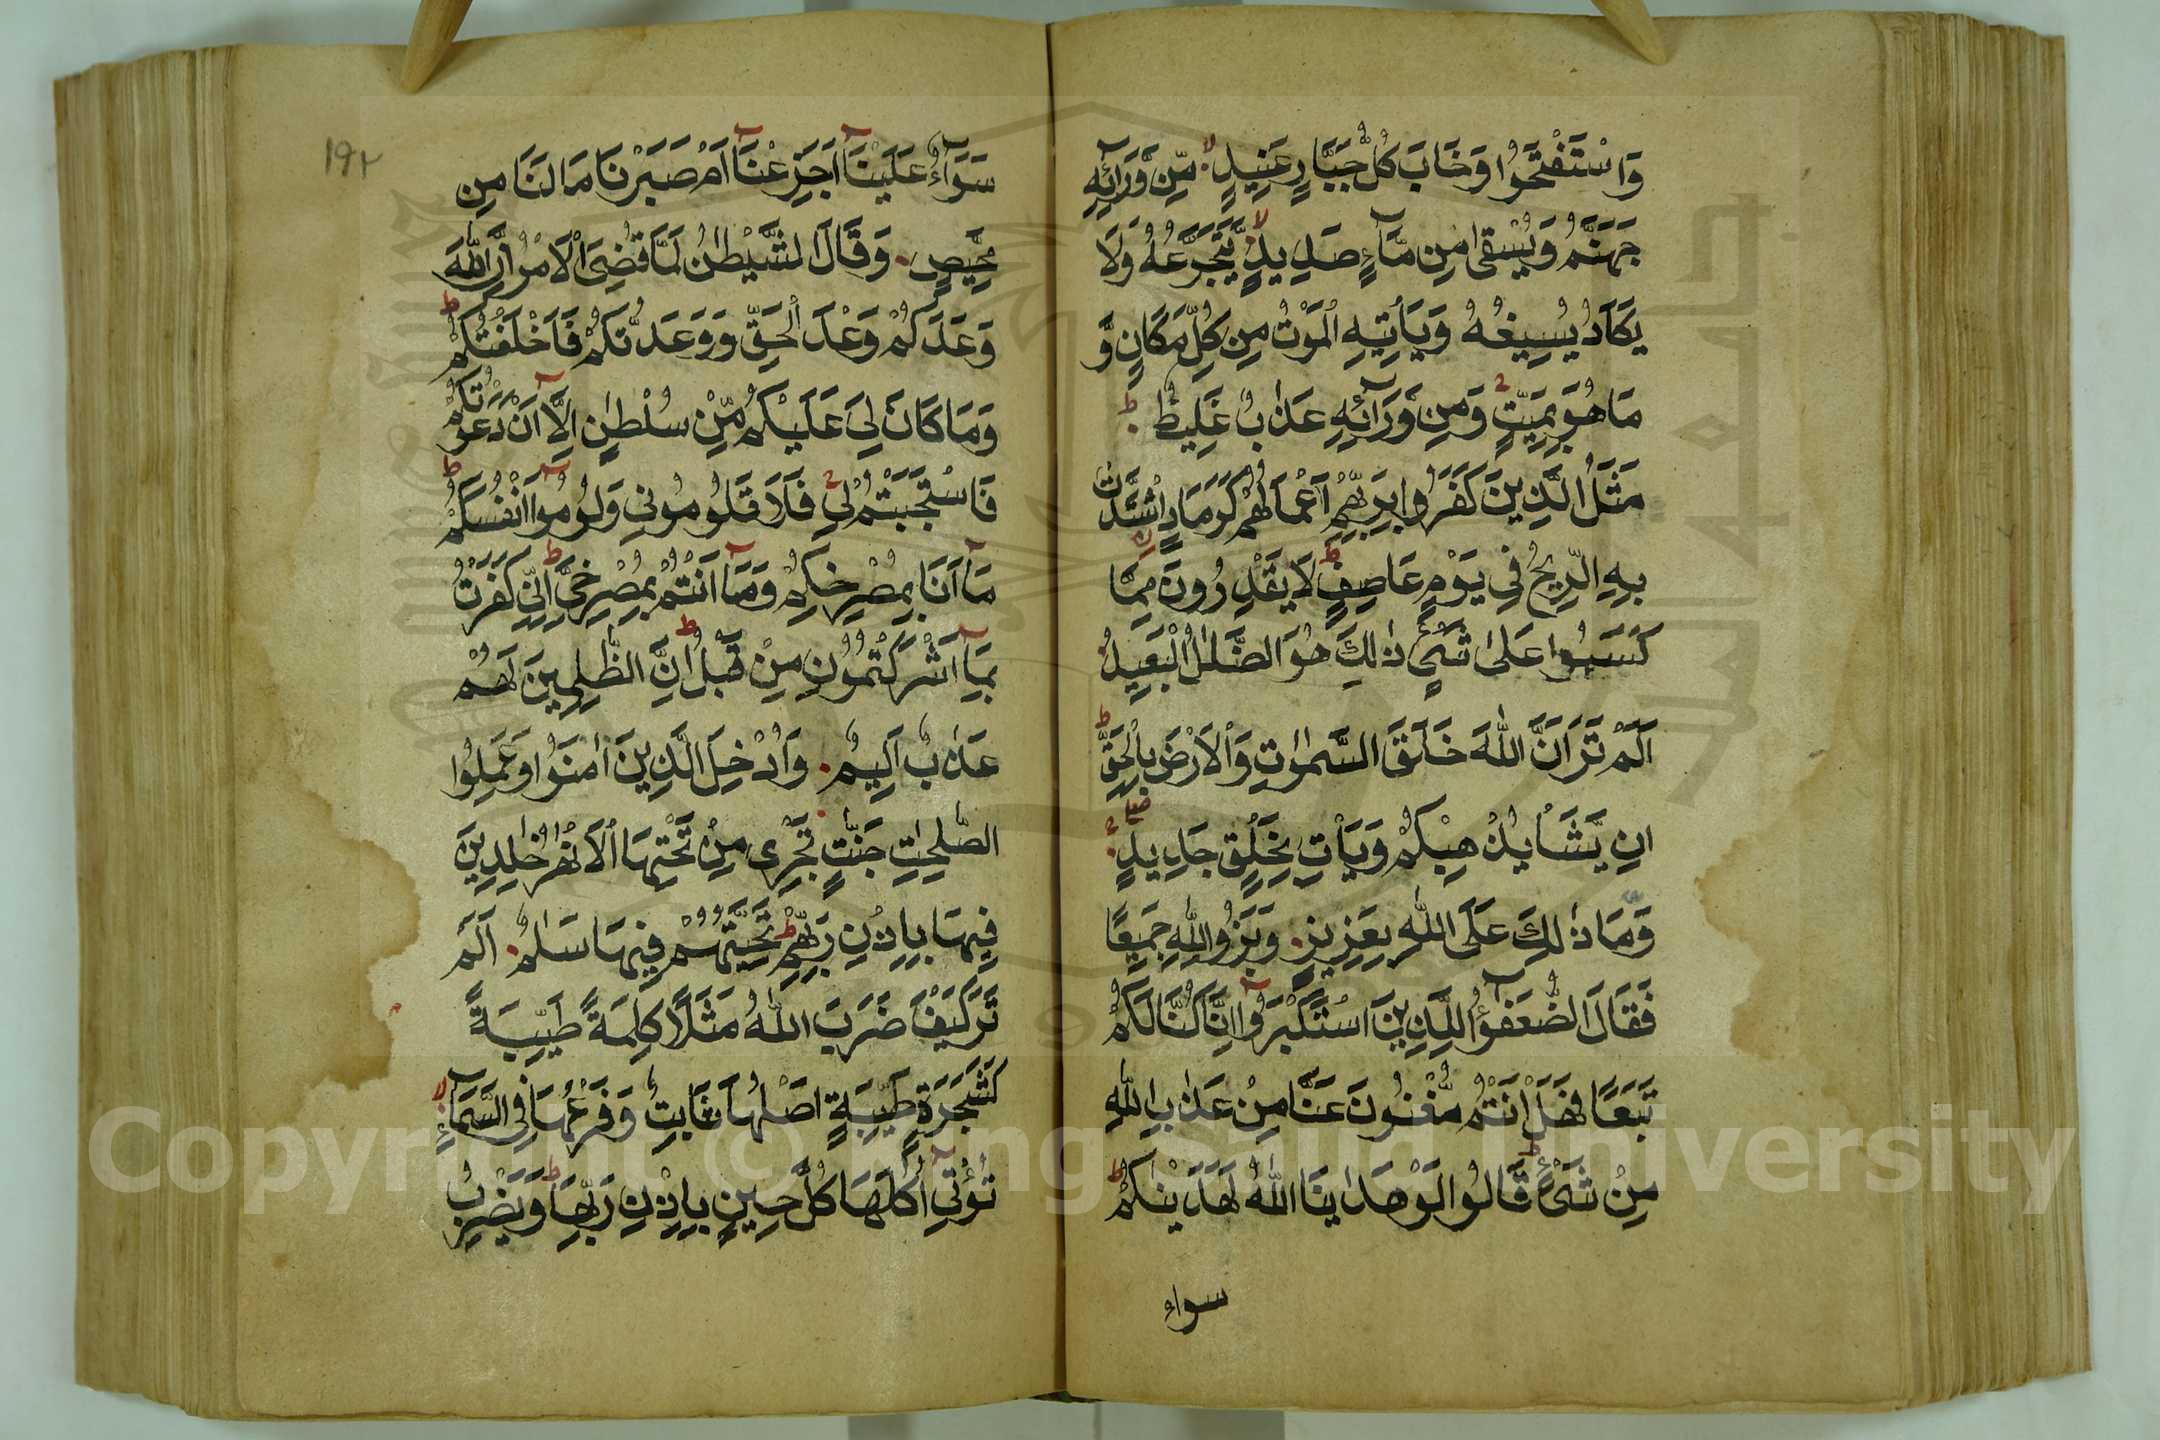 وَاسْتَفْتَحُوا وَخَابَ كُلُّ جَبَّارٍ عَنِيدٍ مِّن وَّرَآئِهِ
جَهَنَّمُ وَيُسْقىٰ مِن مَّآءٍ صَدِيدٍ يَّتَجَرَّعُهُ وَلَا
يَكَادُ يُسِيغُهُ وَيَأْتِيهِ الْمَوْتُ مِن كُلِّ مَكَانٍ وَّ
مَا هُوَ بِمَيِّتٍ وَمِن وَّرَآئِهِ عَذَابٌ غَلِيظٌ
مَثَلُ الَّذِينَ كَفَرُوا بِرَبِّهِمْ اَعْمَالُهُمْ كَرَمَادٍ اشْتَدَّتْ
بِهِ الرِّيحُ فِي يَوْمٍ عَاصِفٍ لَا يَقْدِرُونَ مِمَّا
كَسَبُوا عَلىٰ شَيْءٍ ذٰلِكَ هُوَ الضَّلٰلُ الْبَعِيدُ
اَلَمْ تَرَ اَنَّ اللّٰهَ خَلَقَ السَّمٰوٰتِ وَالْاَرْضَ بِالْحَقِّ
اِن يَّشَأْ يُذْهِبْكُمْ وَيَأْتِ بِخَلْقٍ جَدِيدٍ
وَّمَا ذٰلِكَ عَلَى اللّٰهِ بِعَزِيزٍ وَبَرَزُوا لِلّٰهِ جَمِيعًا
فَقَالَ الضُّعَفٰٓؤُا لِلَّذِينَ اسْتَكْبَرُوا اِنَّا كُنَّا لَكُمْ
تَبَعًا فَهَلْ اَنْتُمْ مُّغْنُونَ عَنَّا مِنْ عَذَابِ اللّٰهِ
مِنْ شَيْءٍ قَالُوا لَوْ هَدٰىنَا اللّٰهُ لَهَدَيْنٰكُمْ
سواء
١٩٢
سَوَآءٌ عَلَيْنَآ اَجَزِعْنَآ اَمْ صَبَرْنَا مَا لَنَا مِن
مَّحِيصٍ وَقَالَ الشَّيْطٰنُ لَمَّا قُضِيَ الْاَمْرُ اِنَّ اللّٰهَ
وَعَدَكُمْ وَعْدَ الْحَقِّ وَوَعَدتُّكُمْ فَاَخْلَفْتُكُمْ
وَمَا كَانَ لِيَ عَلَيْكُمْ مِّنْ سُلْطٰنٍ اِلَّآ اَنْ دَعَوْتُكُمْ
فَاسْتَجَبْتُمْ لِي فَلَا تَلُومُونِي وَلُومُوٓا اَنْفُسَكُمْ
مَآ اَنَا بِمُصْرِخِكُمْ وَمَآ اَنْتُمْ بِمُصْرِخِيَّ اِنِّي كَفَرْتُ
بِمَآ اَشْرَكْتُمُوْنِ مِنْ قَبْلُ اِنَّ الظّٰلِمِينَ لَهُمْ
عَذَابٌ اَلِيمٌ وَاُدْخِلَ الَّذِينَ اٰمَنُوا وَعَمِلُوا
الصّٰلِحٰتِ جَنّٰتٍ تَجْرِي مِنْ تَحْتِهَا الْاَنْهٰرُ خٰلِدِينَ
فِيهَا بِاِذْنِ رَبِّهِمْ تَحِيَّتُهُمْ فِيهَا سَلٰمٌ اَلَمْ
تَرَ كَيْفَ ضَرَبَ اللّٰهُ مَثَلًا كَلِمَةً طَيِّبَةً
كَشَجَرَةٍ طَيِّبَةٍ اَصْلُهَا ثَابِتٌ وَفَرْعُهَا فِي السَّمَآءِ
تُؤْتِيٓ اُكُلَهَا كُلَّ حِينٍ بِاِذْنِ رَبِّهَا وَيَضْرِبُ
Copyright © King Saud University